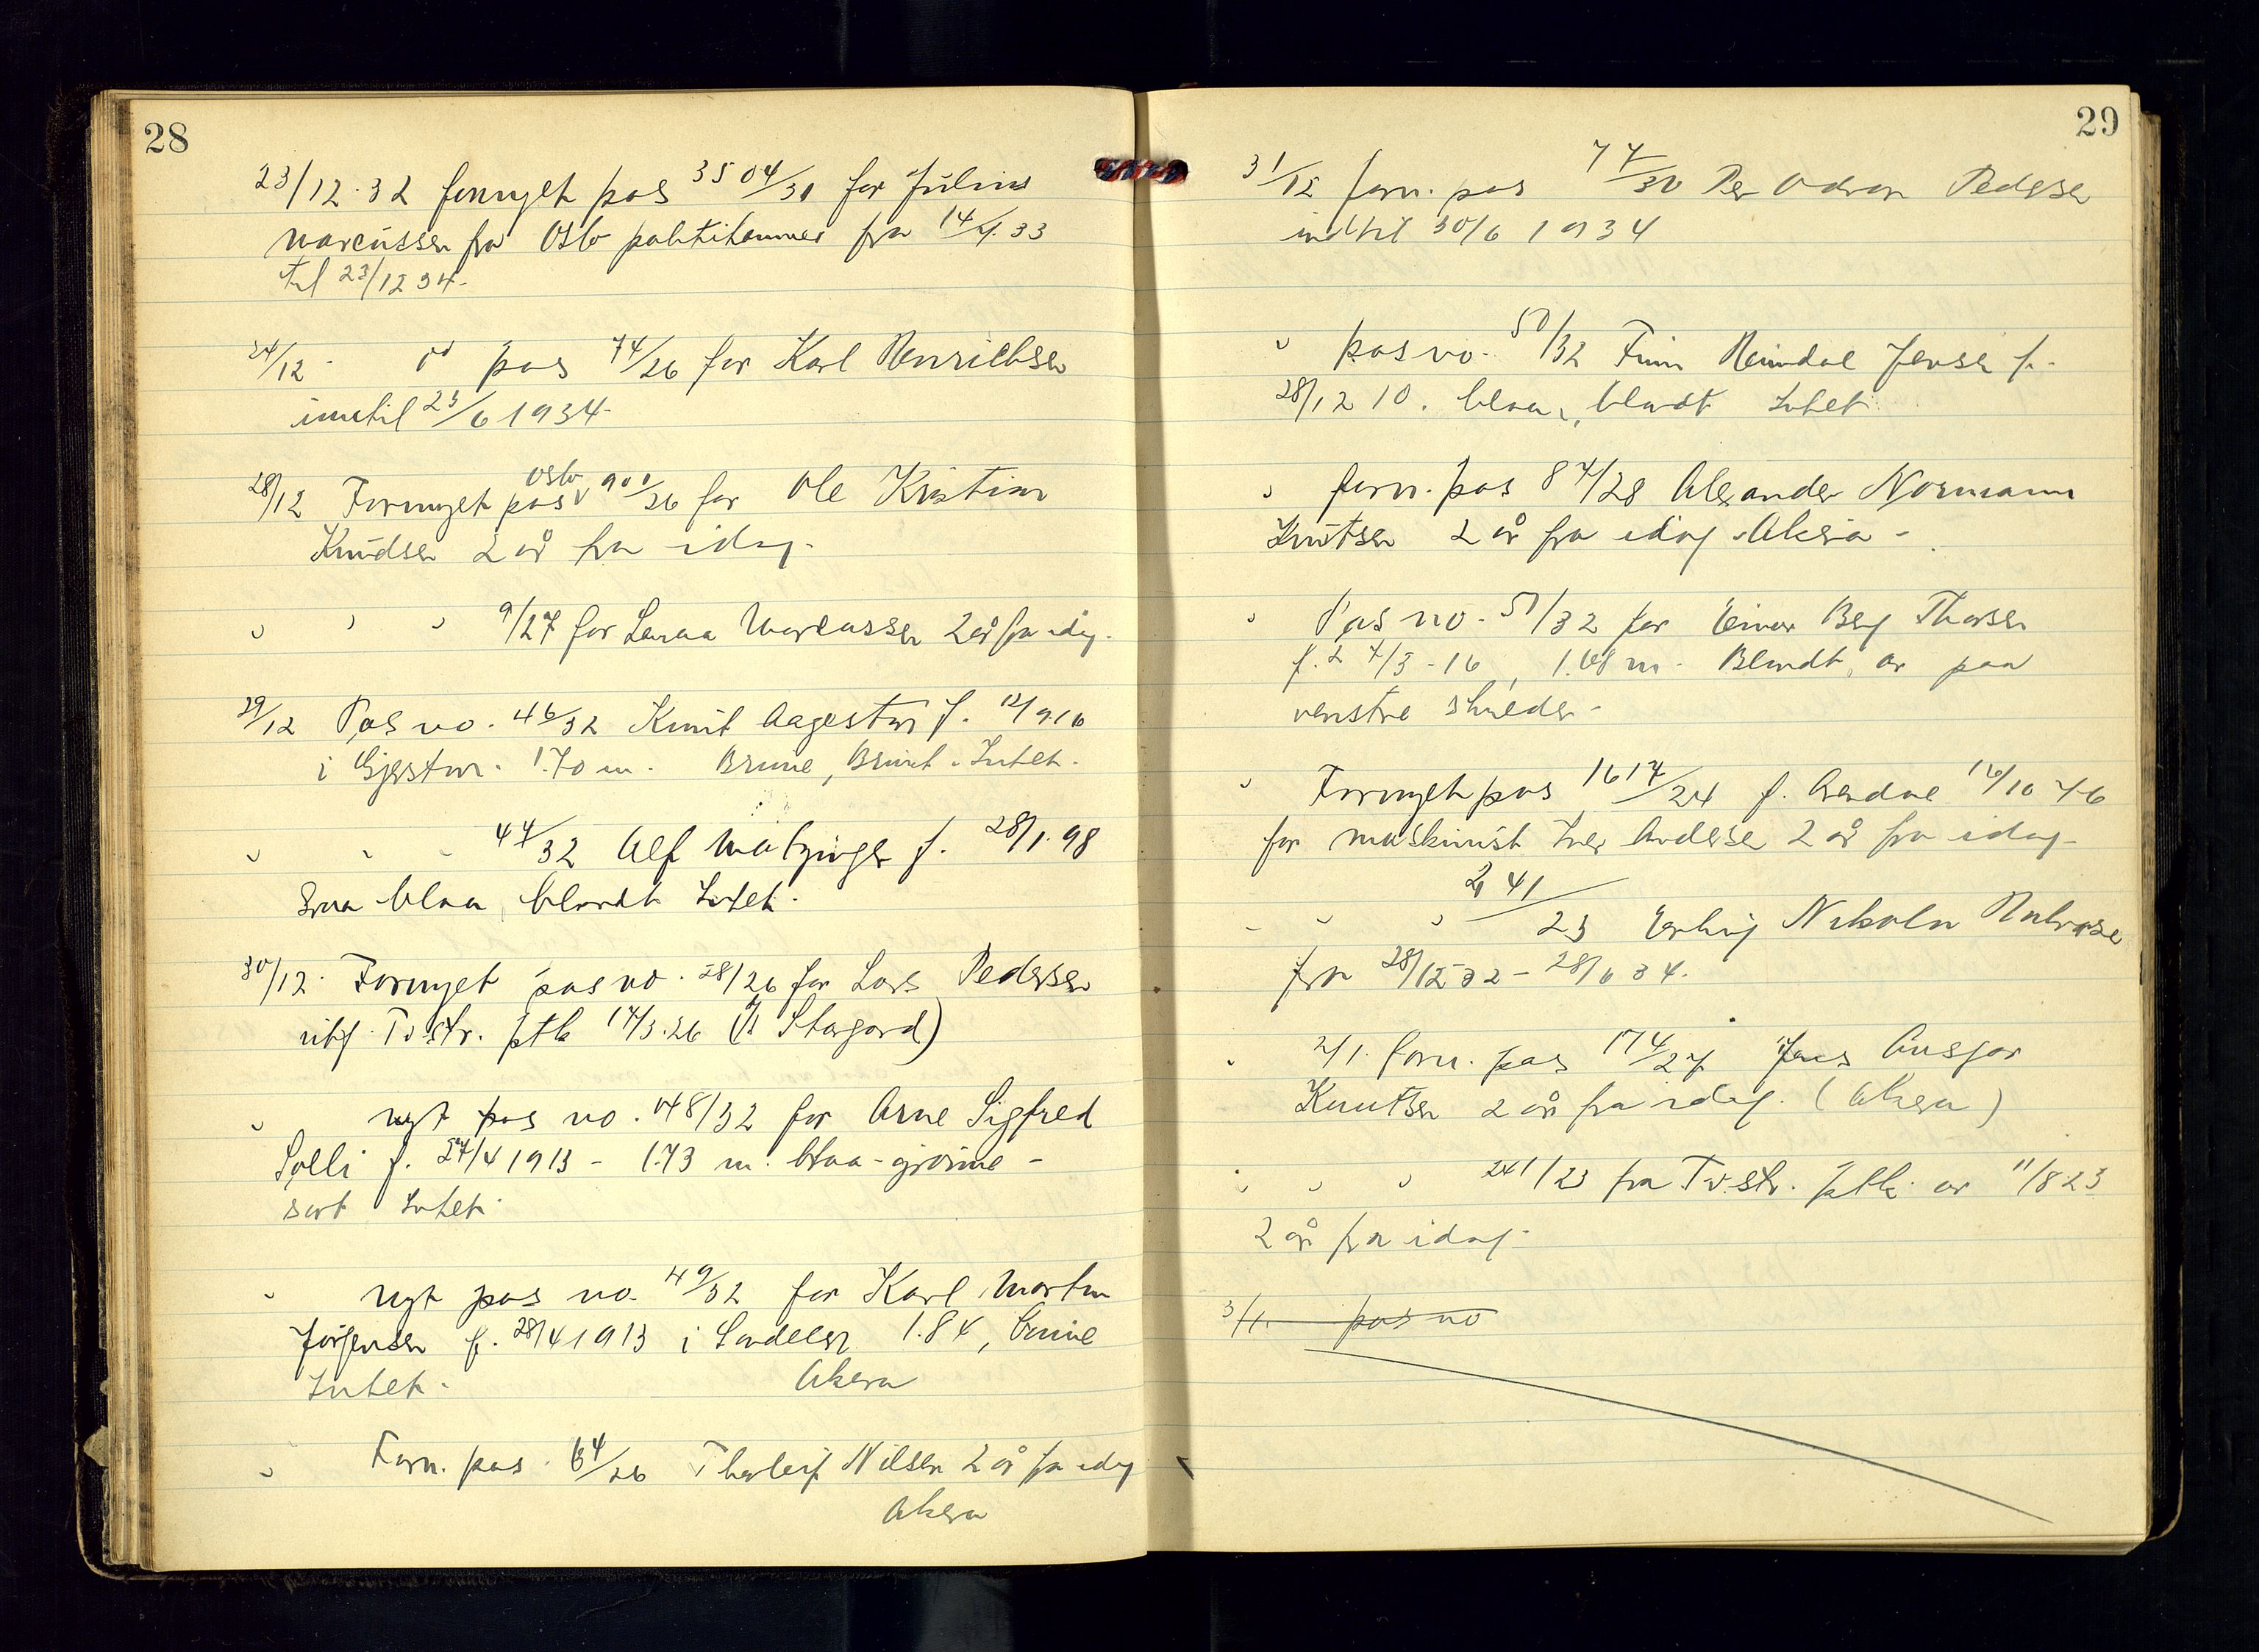 28
23/12.32 fornyet pas 3504/30 for Julius
Marcussen fra Oslo politikammer fra 14/4.33
til 23/12 34.
24/12 - pas 74/26 for Karl Henrichsen
inntil 23/6 1934
28/12 Fornyet pas Oslo 901/26 for Ole Kristian
Knudsen 2 år fra idag.
" " " 9/27 for Laura Marcussen 2 år fra idag.
29/12 Pas no. 46/32 Knut Aagestøn f. 12/9 16
i Gjerstan. 1.70 m. Brune, Brunt. Intet.
" " - 44/32 Alf Matzinger f. 28/1.98
Graa blaa, blondt Intet.
30/12. Fornyet pas no. 28/26 for Lars Pedersen
utf. Tv.str. ptk 17/3.26 (Stargard)
" nyt pas no. 48/32 for Arne Sigfred
Solli f. 27/4 1913 - 1.73 m. blaa-grønne -
sort Intet.
" Nyt pas no. 49/32 for Karl Martin
Jørgensen f. 28/4 1913 i Sandeler 1.84, brune
Intet. Akera
" Forn. pas. 64/26 Thorleif Nilsen 2 år fra idag
Akera
29
31/12 forn. pas 74/30 Per Odvar Pedersen
indtil 30/6 1934
" pas no. 50/32 Finn Heimdal Jensen f.
28/12 10. blaa, blondt Intet
" forn. pas 84/28 Alexander Normann
Knutsen 2 år fra idag. Akera -
" Pas no. 51/32 for Einar Berg Thorsen
f. 27/3-16, 1.68 m. Blondt, ar paa
venstre skulder -
" Fornyet pas 1617/24 f. Arendal 16/10 76
for maskinist Iver Andersen 2 år fra idag
- " " 241/23 Erling Nikolai Halvorsen
fra 28/12-32 - 28/6 34.
" 2/1. forn. pas 174/27 Jens Ansgar
Knutsen 2 år fra idag. (Akera)
" " " 241/23 fra Tv.str. ptk. av 11/8 23
2 år fra idag.
3/1. pas no